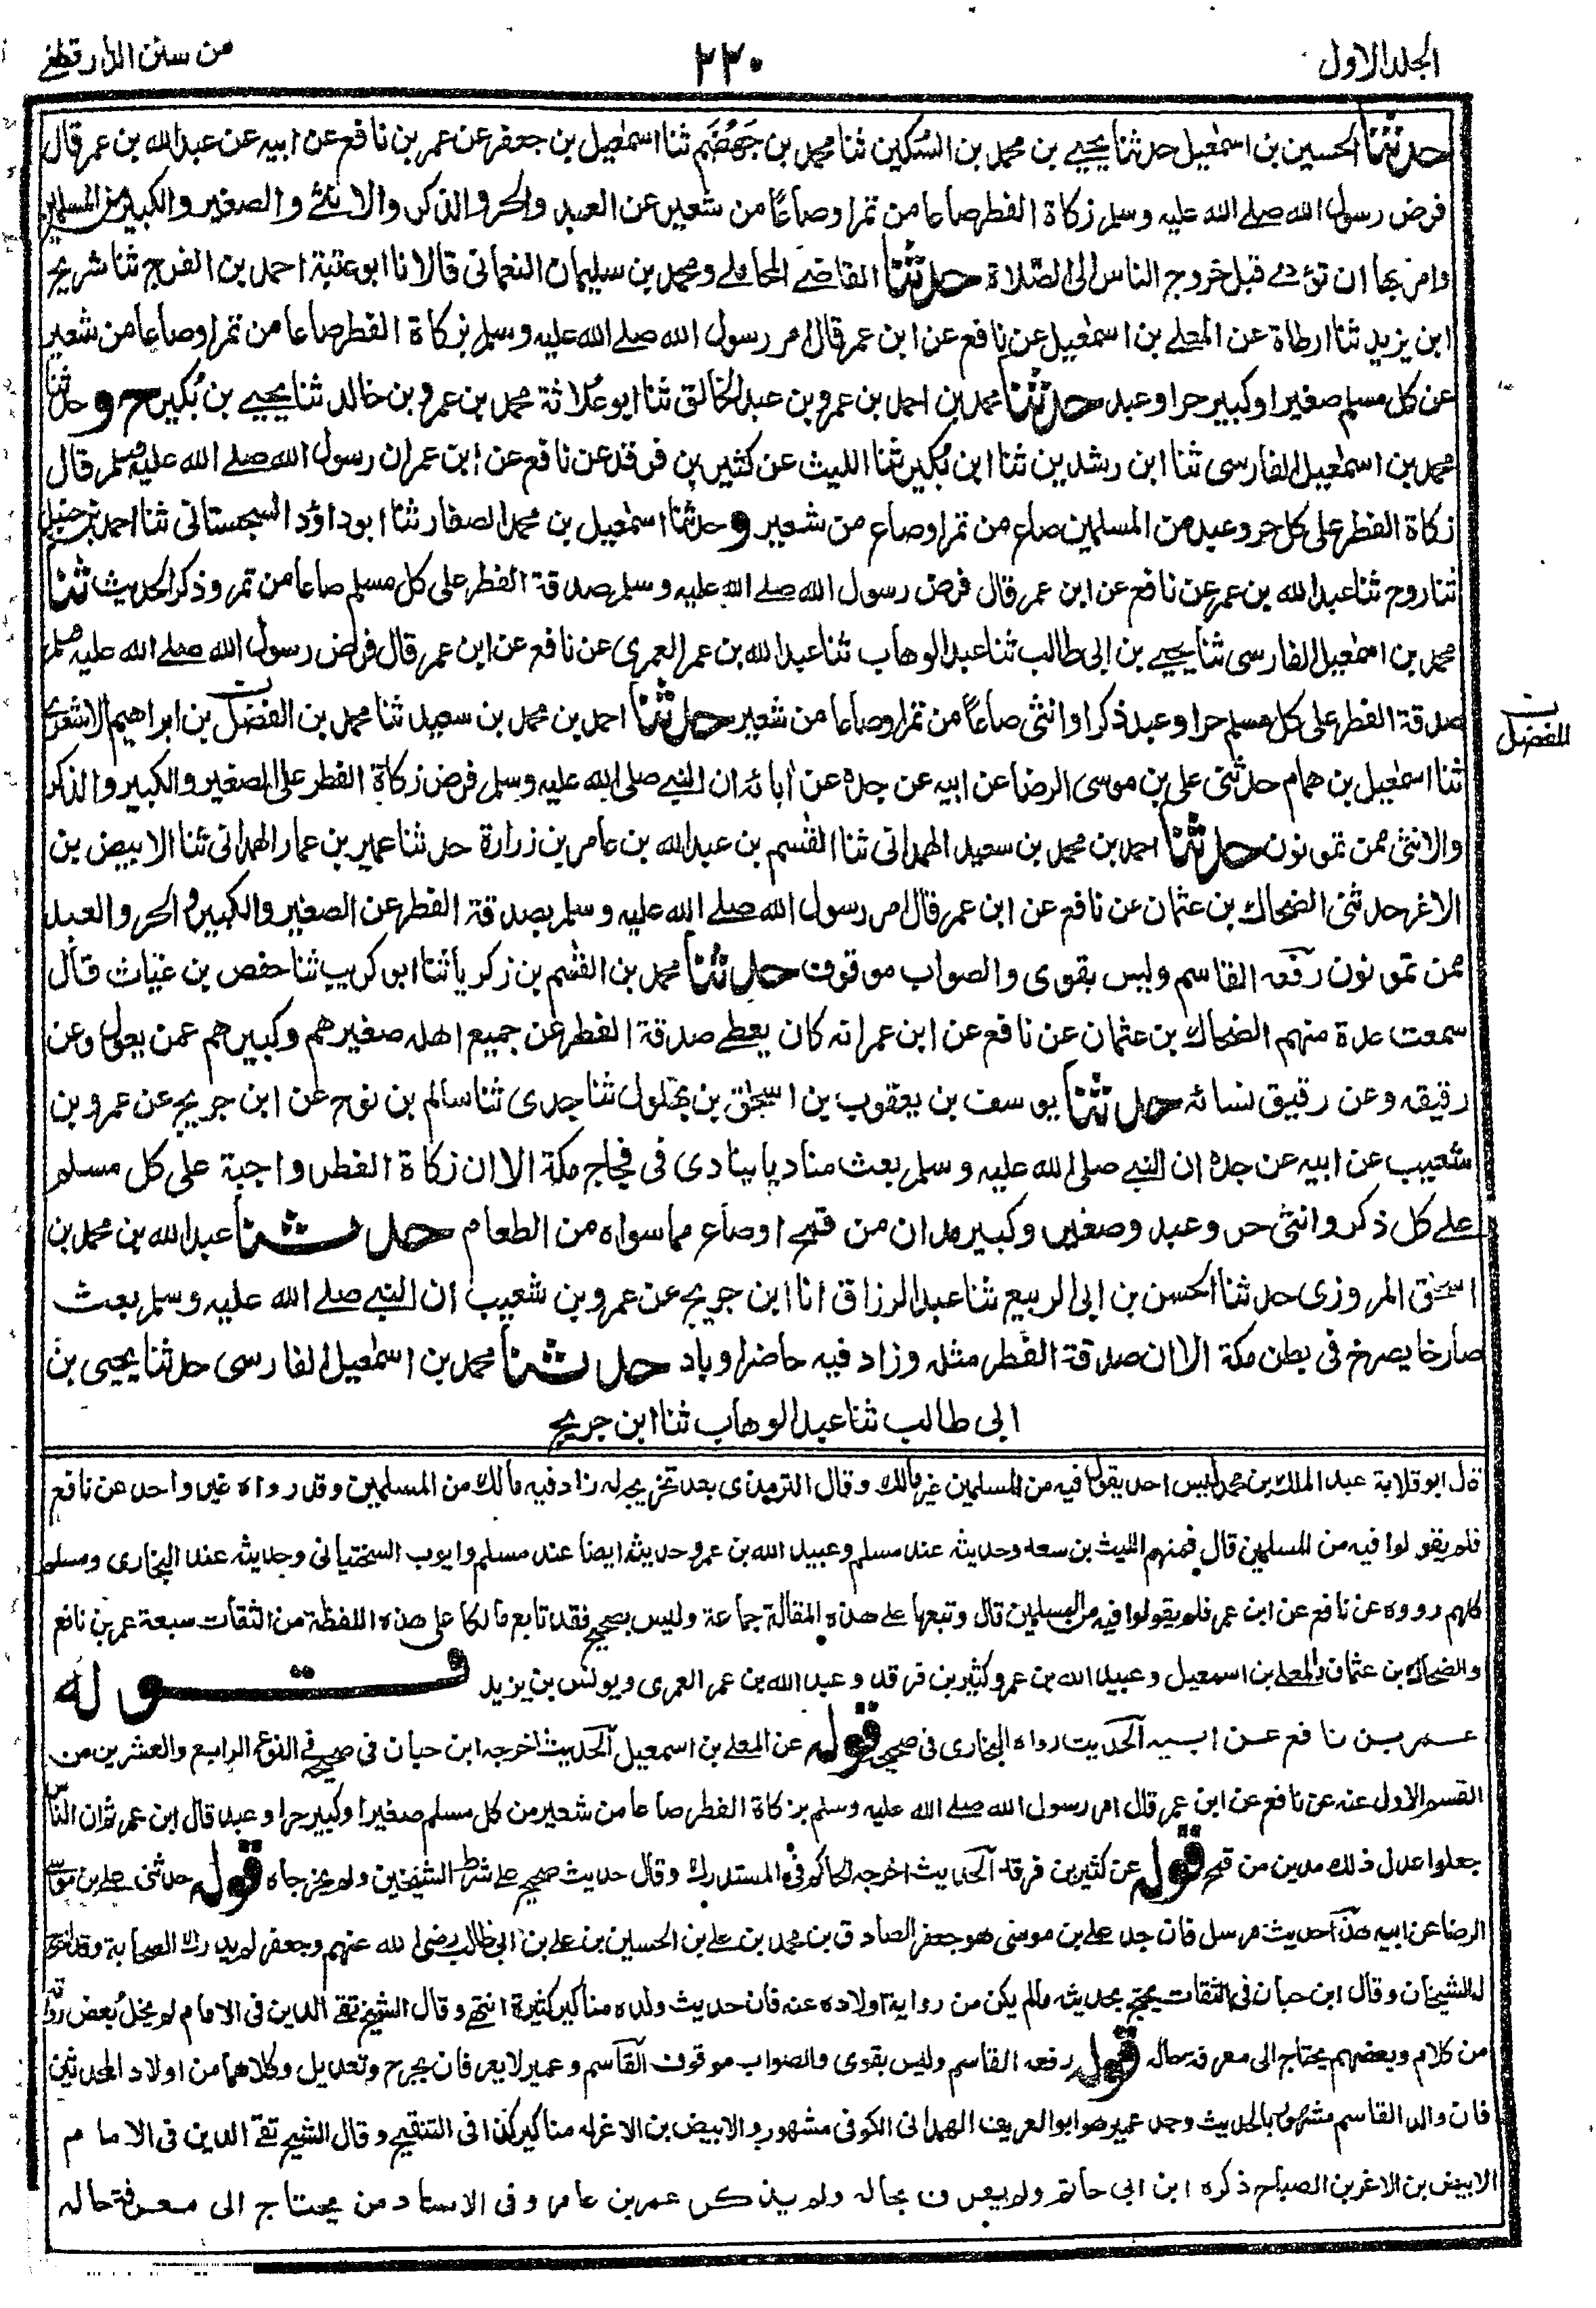 الجلد الاول
٢٢٠
من سنن الدارقطنے
حدثنا الحسين بن اسمٰعيل حدثنا يحيے بن محمد بن السكين ثنا محمد بن جَهْضَم ثنا اسمٰعيل بن جعفر عن عمر بن نافع عن ابيه عن عبد الله بن عمر قال
فرض رسول الله صلے الله عليه وسلم زكاة الفطر صاعا من تمر او صاعًا من شعير عن العبد والحر والذكر والانثے والصغير والكبير من المسلمين
وامر بها ان تؤدے قبل خروج الناس الى الصّلاة حدثنا القاضے المحاملے ومحمد بن سليمان النعمانى قالا نا ابو عتبة احمد بن الفرج ثنا شريح
ابن يزيد ثنا ارطاة عن المعلے بن اسمٰعيل عن نافع عن ابن عمر قال امر رسول الله صلے الله عليه وسلم بزكاة الفطر صاعا من تمر او صاعا من شعير
عن كل مسلم صغير او كبير حر او عبد حدثنا محمد بن احمد بن عمرو بن عبد الخالق ثنا ابو عُلاثة محمد بن عمرو بن خالد ثنا يحيے بن بُكير ح وحدثنا
محمد بن اسمٰعيل الفارسى ثنا ابن رشدين ثنا ابن بُكير ثنا الليث عن كثير بن فرقد عن نافع عن ابن عمر ان رسول الله صلے الله عليه وسلم قال
زكاة الفطر على كل حر وعبد من المسلمين صاع من تمر او صاع من شعير وحدثنا اسمٰعيل بن محمد الصفار ثنا ابو داؤد السجستانى ثنا احمد بن حنبل
ثنا روح ثنا عبد الله بن عمر عن نافع عن ابن عمر قال فرض رسول الله صلے الله عليه وسلم صدقة الفطر على كل مسلم صاعا من تمر وذكر الحديث ثنا
محمد بن اسمٰعيل الفارسى ثنا يحيے بن ابى طالب ثنا عبد الوهاب ثنا عبد الله بن عمر العمرى عن نافع عن ابن عمر قال فرض رسول الله صلے الله عليه وسلم
صدقة الفطر على كل مسلم حر او عبد ذكر او انثى صاعًا من تمر او صاعا من شعير حدثنا احمد بن محمد بن سعيد ثنا محمد بن الفضل بن ابراهيم الاشعرے
المفضل
ثنا اسمٰعيل بن همام حدثنى على بن موسى الرضا عن ابيه عن جده عن اٰبائه ان النبے صلى الله عليه وسلم فرض زكاة الفطر على الصغير والكبير والذكر
والانثى ممن تمونون حدثنا احمد بن محمد بن سعيد الهمدانى ثنا القٰسم بن عبد الله بن عامر بن زرارة حدثنا عمير بن عمار الهمدانى ثنا الابيض بن
الاغر حدثنى الضحاك بن عثمان عن نافع عن ابن عمر قال امر رسول الله صلے الله عليه وسلم بصدقة الفطر عن الصغير والكبير والحر والعبد
ممن تمونون رفعه القاسم وليس بقوى والصواب موقوف حدثنا محمد بن القٰسم بن زكريا ثنا ابو كريب ثنا حفص بن غياث قال
سمعت عدة منهم الضحاك بن عثمان عن نافع عن ابن عمر انه كان يعطے صدقة الفطر عن جميع اهله صغيرهم وكبيرهم عمن يعول وعن
رقيقه وعن رقيق نسائه حدثنا يوسف بن يعقوب بن اسحٰق بن بهلول ثنا جدى ثنا سالم بن نوح عن ابن جريج عن عمرو بن
شعيب عن ابيه عن جده ان النبے صلى الله عليه وسلم بعث مناديا ينادى فى فجاج مكة الا ان زكاة الفطر واجبة على كل مسلم
علے كل ذكر وانثى حر وعبد وصغير وكبير مدان من قمح او صاع مما سواه من الطعام حدثنا عبد الله بن محمد بن
اسحٰق المروزى حدثنا الحسن بن ابى الربيع ثنا عبد الرزاق انا ابن جريج عن عمرو بن شعيب ان النبے صلے الله عليه وسلم بعث
صارخا يصرخ فى بطن مكة الا ان صدقة الفطر مثله وزاد فيه حاضر او باد حدثنا محمد بن اسمٰعيل الفارسى حدثنا يحيى بن
ابى طالب ثنا عبد الوهاب ثنا ابن جريج
قال ابو قلابة عبد الملك بن محمد ليس احد يقول فيه من المسلمين غير مالك وقال الترمذى بعد تخريجه له زاد فيه مالك من المسلمين وقد رواه غير واحد عن نافع
فلم يقولوا فيه من المسلمين قال فمنهم الليث بن سعد وحديثه عند مسلم وعبيد الله بن عمر وحديثه ايضا عند مسلم وايوب السختيانى وحديثه عند البخارى ومسلم
كلهم رووه عن نافع عن ابن عمر فلم يقولوا فيه من المسلمين قال وتبعهما علے هذه المقالة جماعة وليس بصحيح فقد تابع مالكا على هذه اللفظة من الثقات سبعة عمر بن نافع
والضحاك بن عثمان والمعلے بن اسمعيل وعبيد الله بن عمر وكثير بن فرقد وعبد الله بن عمر العمرى ويونس بن يزيد قوله
عمر بن نافع عن ابيه الحديث رواه البخارى فى صحيحه قوله عن المعلے بن اسمعيل الحديث اخرجه ابن حبان فى صحيحه فے النوع الرابع والعشرين من
القسم الاول عنه عن نافع عن ابن عمر قال امر رسول الله صلے الله عليه وسلم بزكاة الفطر صاعا من شعير من كل مسلم صغير او كبير حر او عبد قال ابن عمر ثم ان الناس
جعلوا عدل ذلك مدين من قمح قوله عن كثير بن فرقد الحديث اخرجه الحاكم فى المستدرك وقال حديث صحيح علے شرط الشيخين ولم يخرجاه قوله حدثنى علے بن موسے
الرضا عن ابيه هذا حديث مرسل فان جد علے بن موسى هو جعفر الصادق بن محمد بن علے بن الحسين بن علے بن ابى طالب رضى الله عنهم وجعفر لم يدرك الصحابة وقد اخرج
له الشيخان وقال ابن حبان فى الثقات يحتج بحديثه مالم يكن من رواية اولاده عنه فان حديث ولده مناكير كثيرة انتهے وقال الشيخ تقے الدين فى الامام لم يخل بعض رواته
من كلام وبعضهم يحتاج الى معرفة حاله قوله رفعه القاسم وليس بقوى والصواب موقوف القاسم وعمير لا يعرفان بجرح وتعديل وكلاهما من اولاد المحدثين
فان والد القاسم مشهور بالحديث وجد عمير هو ابو العريف الهمدانى الكوفى مشهور والابيض بن الاغر له مناكير كذا فى التنقيح وقال الشيخ تقے الدين فى الامام
الابيض بن الاغر بن الصباح ذكره ابن ابى حاتم ولم يعرف بحاله ولم يذكر عمر بن عامر وفى الاسناد من يحتاج الى معرفة حاله